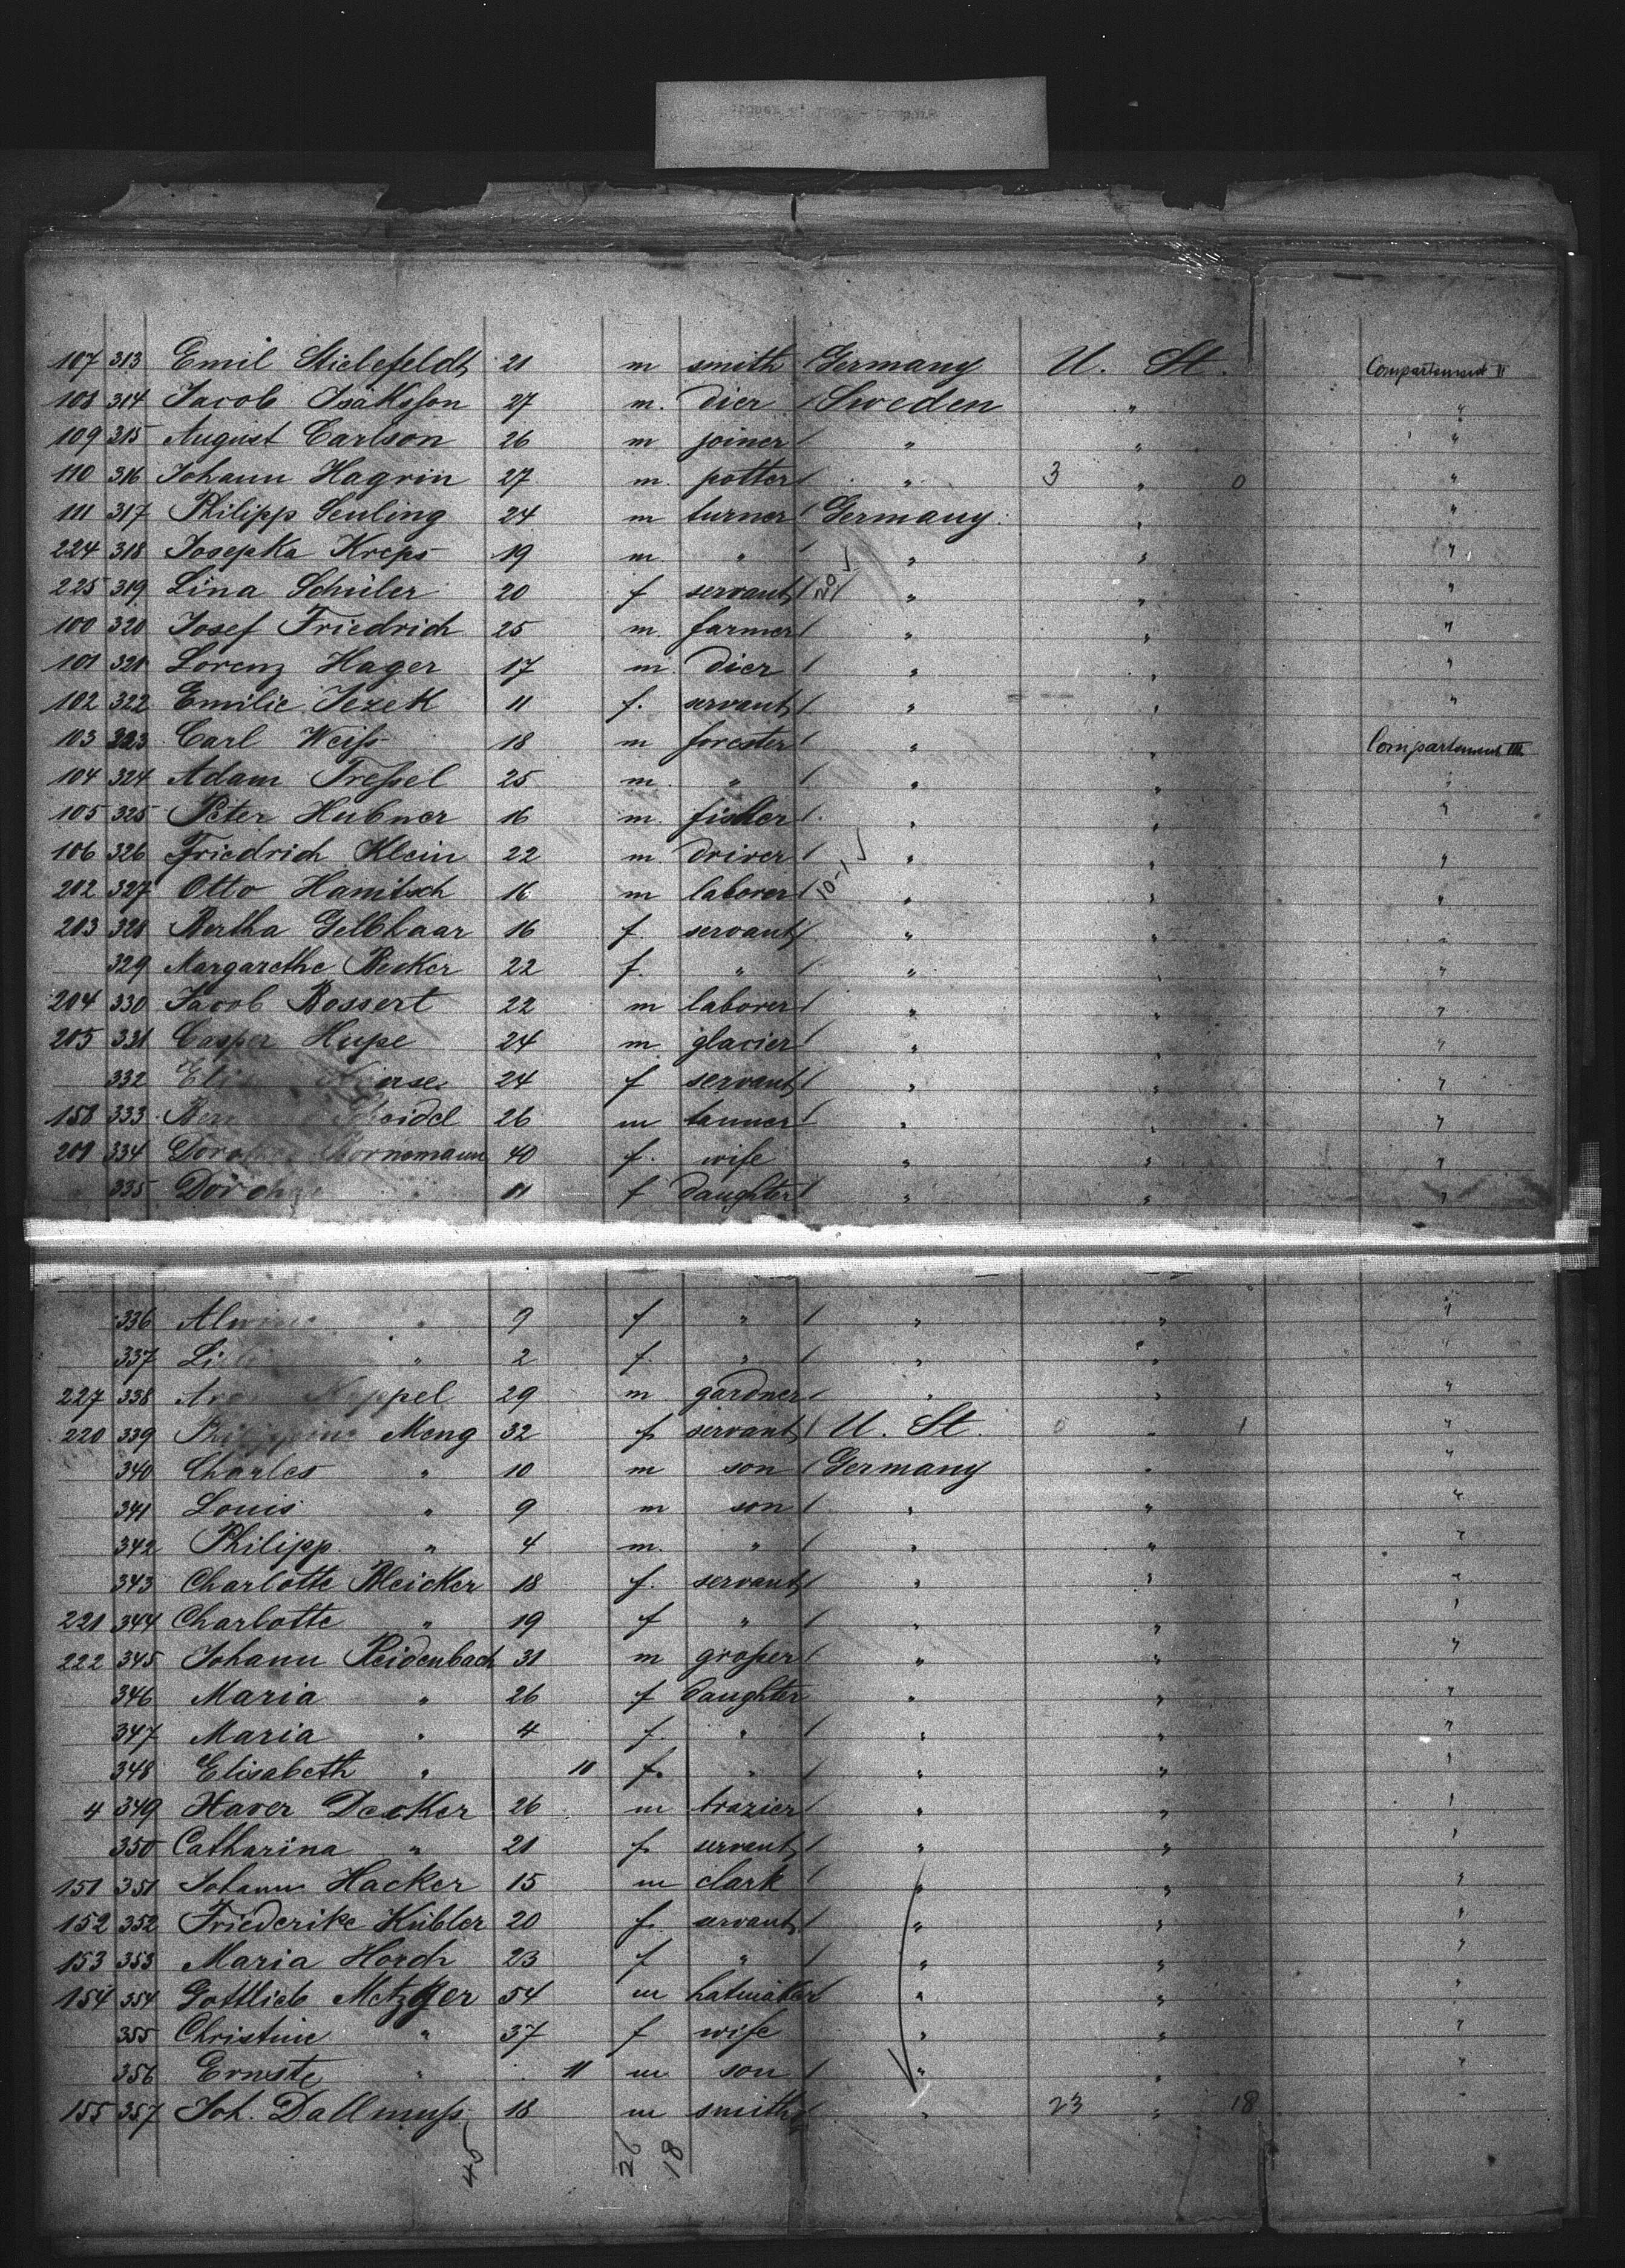 107 313 Emil Stielefeldt 21 m smith Germany U. St. Compartement II
108 314 Jacob Isaksson 27 m. dier Sweden " "
109 315 August Carlson 26 m joiner " " "
110 316 Johann Hagrin 27 m. potter " 3 " 0 "
111 317 Philipp Seuling 24 m turner Germany " "
224 318 Josepka Kreps 19 m. " " " "
225 319 Lina Schüler 20 f servant " " "
100 320 Josef Friedrich 25 m. farmer " " "
101 321 Lorenz Hager 17 m dier " " "
102 322 Emilie Jezek 11 f. servant " " "
103 323 Carl Weiss 18 m forester " " Compartement III
104 324 Adam Tressel 25 m. " " " "
105 325 Peter Hubner 16 m. fisher " " "
106 326 Friedrich Klein 22 m driver " " "
202 327 Otto Hanitsch 16 m laborer 10-1 " " "
203 328 Bertha Gelbhaar 16 f. servant " " "
329 Margarethe Becker 22 f. " " " "
204 330 Jacob Bossert 22 m laborer " " "
205 331 Casper Hupe 24 m glacier " " "
332 24 f servant " " "
158 333 26 m tanner " " "
201 334 Hornemann 40 f. wife " " "
335 11 f daughter " " "
336 " 9 f " " " "
337 " 2 f. " " " "
227 338 29 m gardner " " "
220 339 Meng 32 f servant U. St. 0 " 1 "
340 Charles " 10 m son Germany " "
341 Louis " 9 m son " " "
342 Philipp " 4 m. " " " "
343 Charlotte Bleicker 18 f. servant " " "
221 344 Charlotte " 19 f " " " "
222 345 Johann Reidenbach 31 m grosser " " "
346 Maria " 26 f daughter " " "
347 Maria " 4 f. " " " "
348 Elisabeth " 10 f. " " " "
4 349 Haver Decker 26 m brazier " " "
350 Catharina " 21 f servant " " "
151 351 Johann Hacker 15 m clark " " "
152 352 Friederike Kübler 20 f. servant " " "
153 353 Maria Horch 23 f " " " "
154 354 Gottlieb Metzger 54 m hatmaker " " "
355 Christine " 37 f wife " " "
356 Ernste " 11 m son " " "
155 357 Joh. Dallmuss 18 m smith " 23 " 18
45 26 18